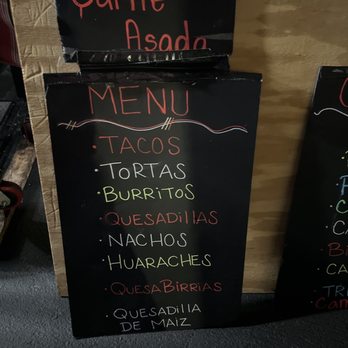 Carne
Asada
MENU
· TACOS
· TORTAS
· BURRITOS
· QUESADILLAS
· NACHOS
· HUARACHES
· QUESABIRRIAS
· QUESADILLA
DE MAIZ